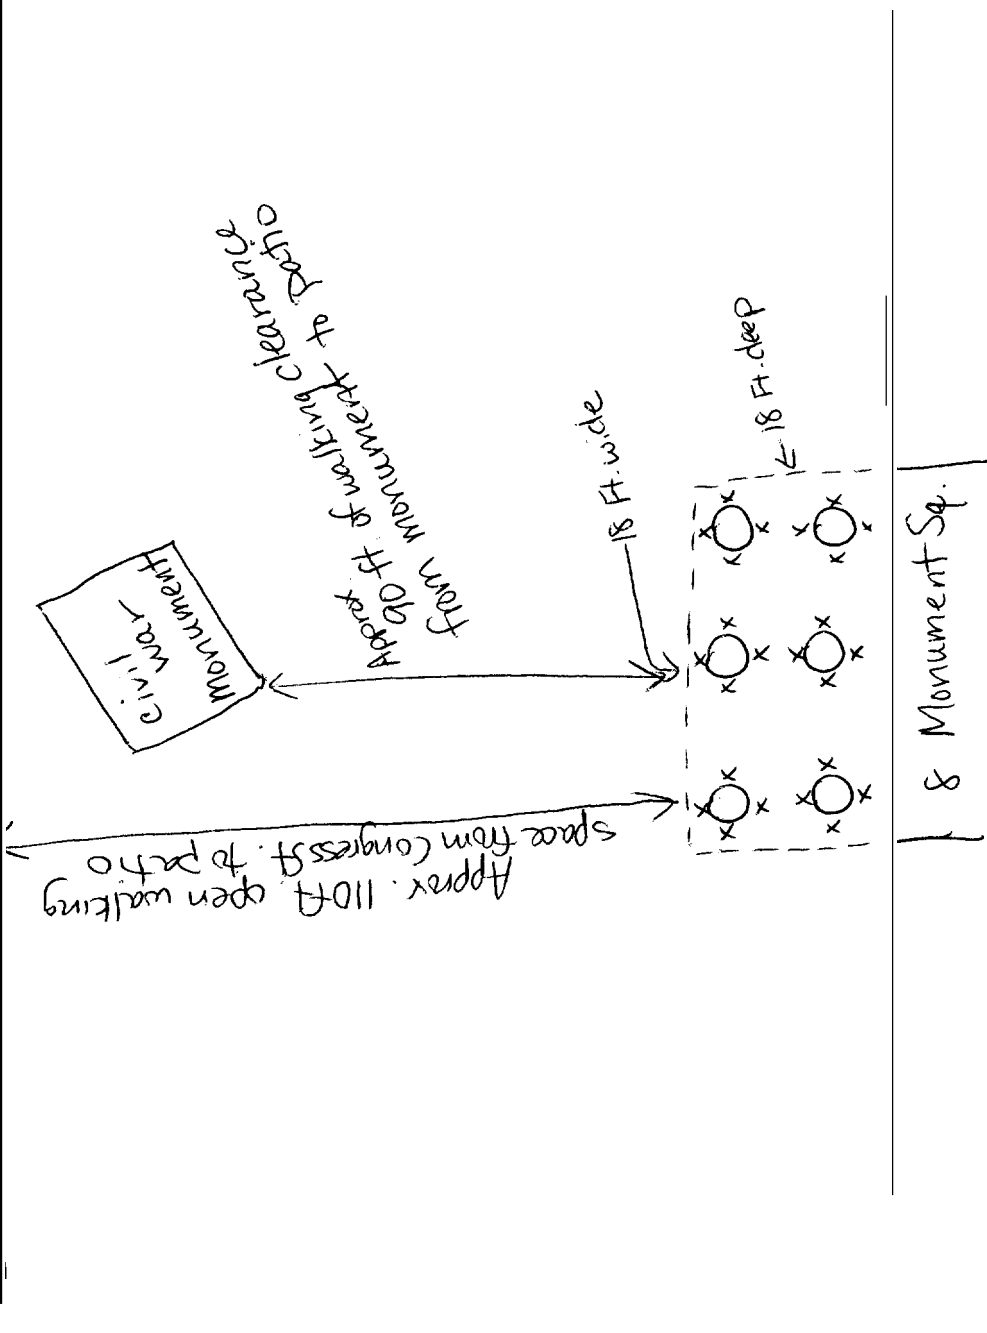 Civil
war
Monument
Approx
90 ft of walking clearance
from monument to patio
18 Ft. wide
18 Ft. deep
Approx. 110ft. open walking
space from Congress St. to patio
8 Monument Sq.